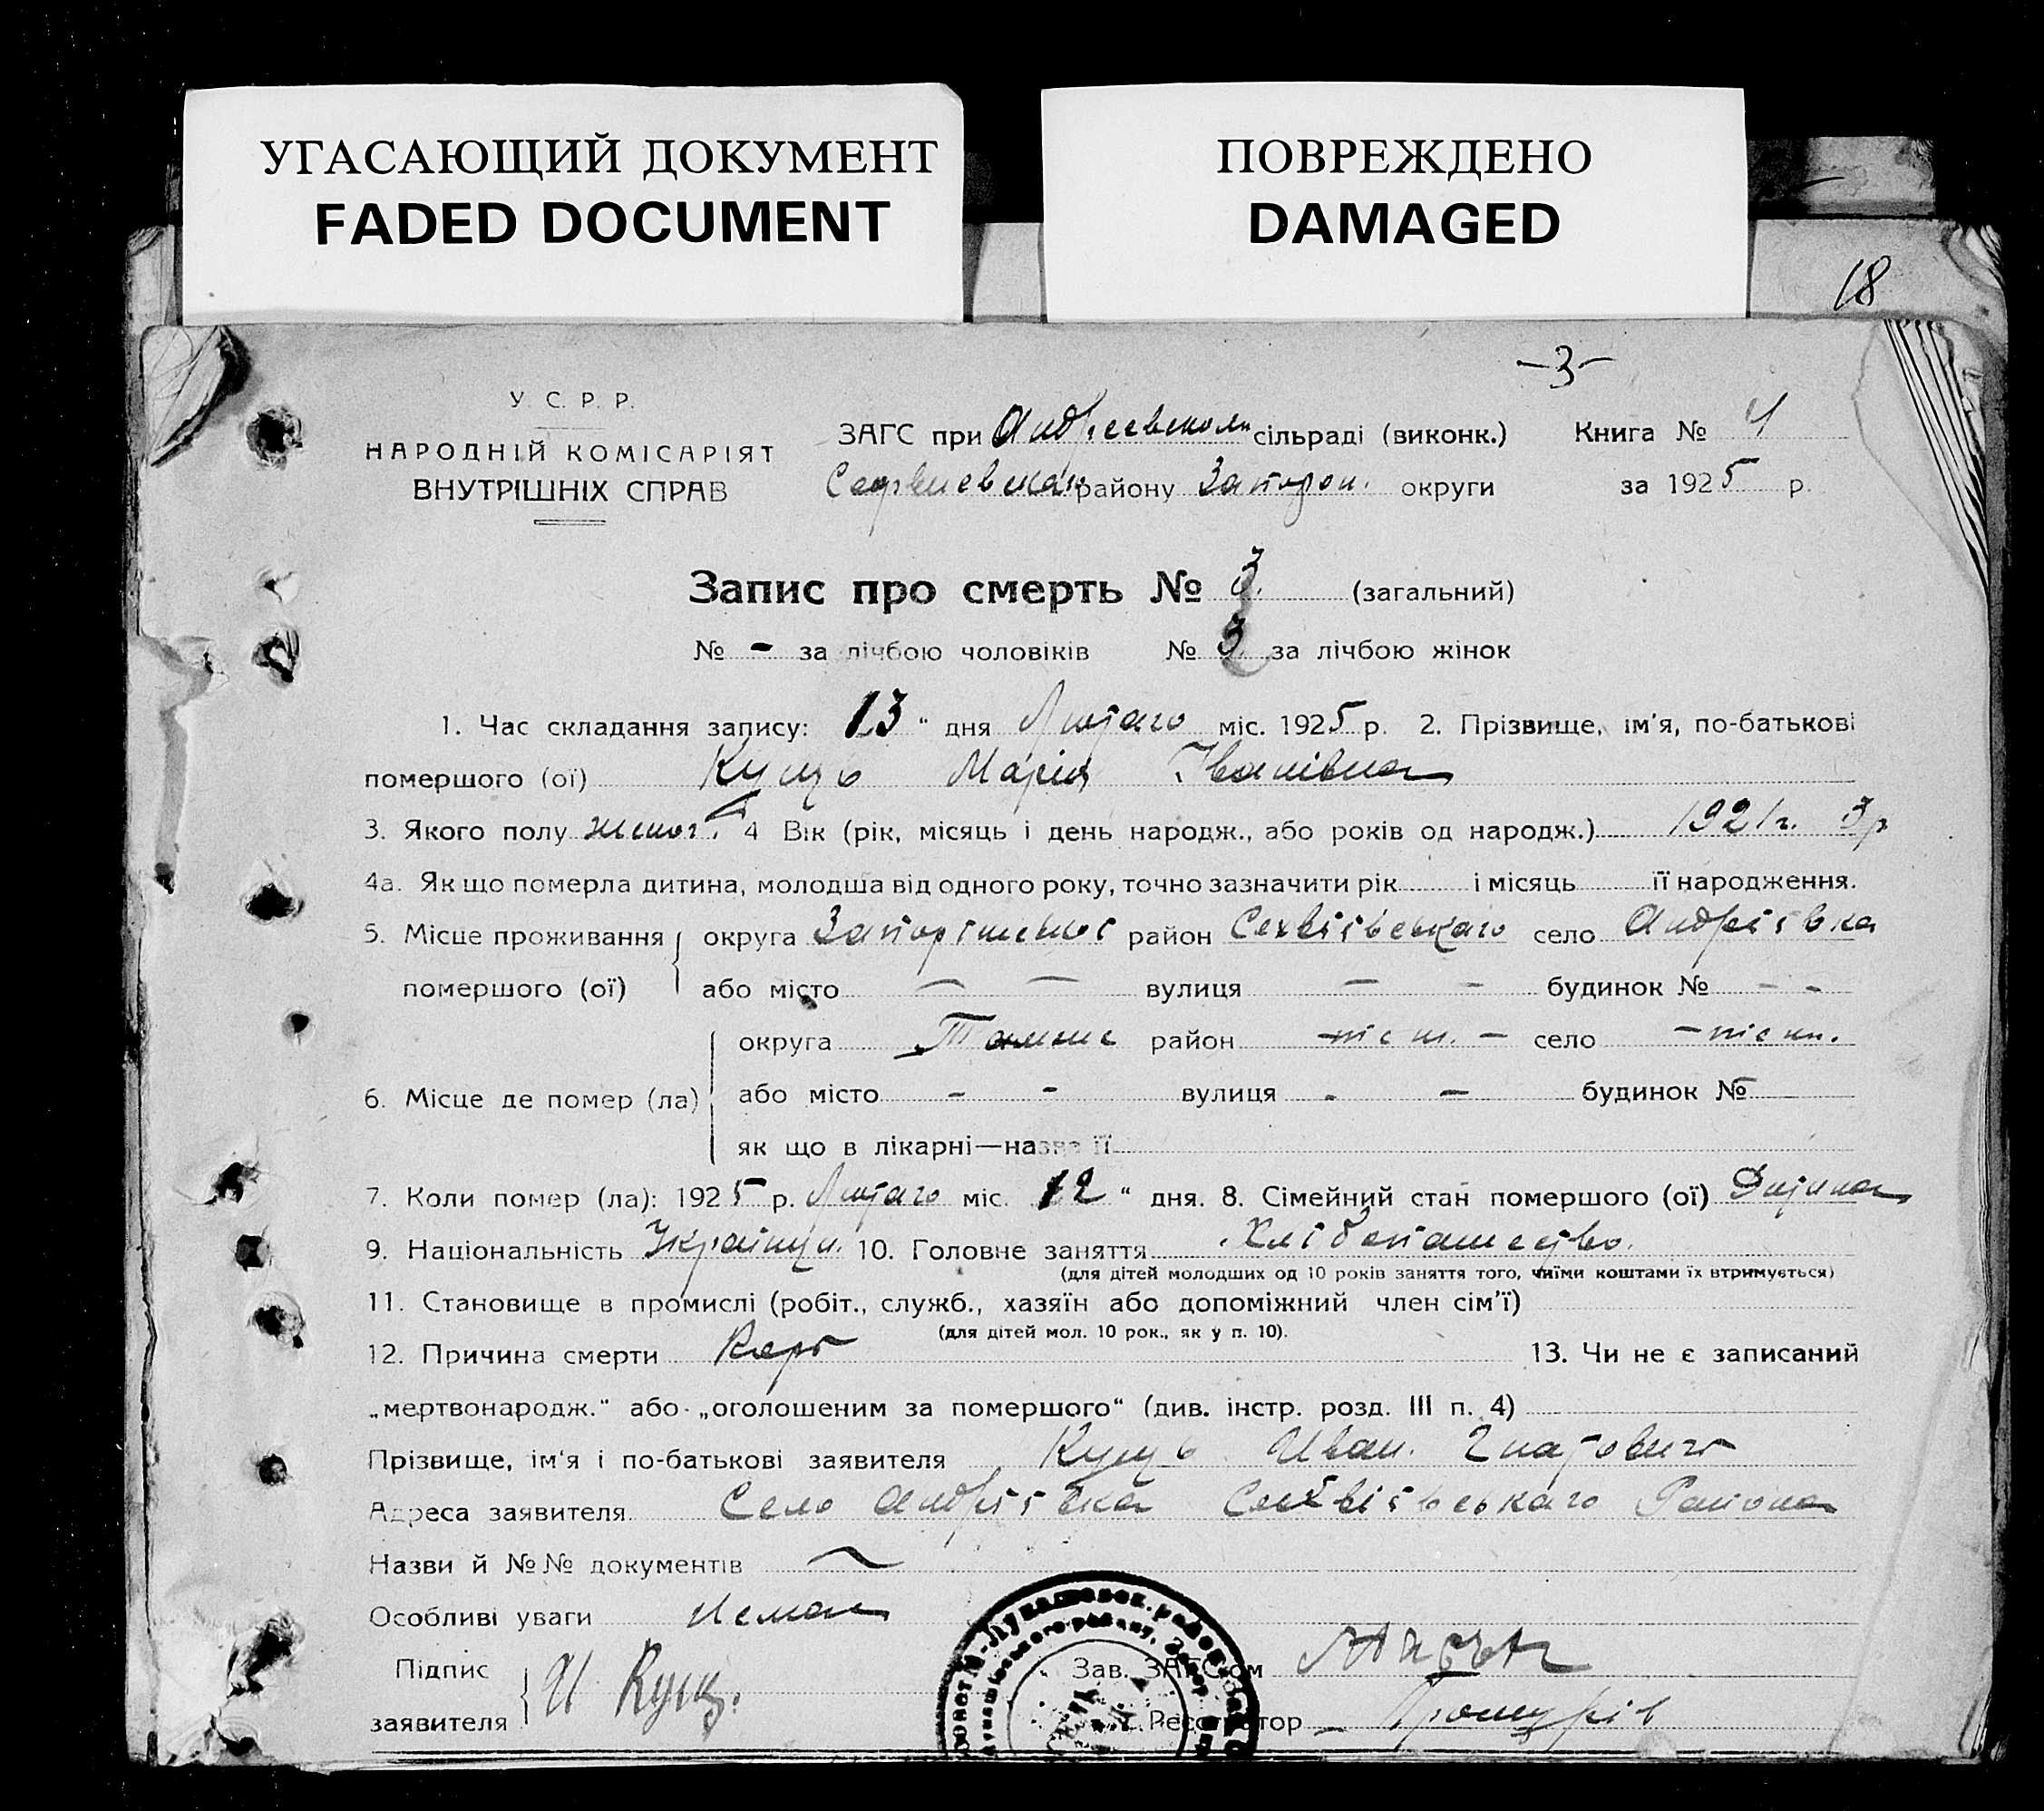 УГАСАЮЩИЙ ДОКУМЕНТ
FADED DOCUMENT
ПОВРЕЖДЕНО
DAMAGED
18
-3-
У. С. Р. Р.
НАРОДНІЙ КОМІСАРІЯТ
ВНУТРІШНІХ СПРАВ
ЗАГС при Андреевском сільраді (виконк.) Книга № 4
району Запорож. округи за 1925 р.
Запис про смерть № 3. (загальний)
№ - за лічбою чоловіків № 3 за лічбою жінок
1. Час складання запису: 13 " дня Лютаго міс. 1925 р. 2. Прізвище, ім'я, по-батькові
помершого (ої) Куць Марія Іванівна
3. Якого полу жіноч. 4 Вік (рік, місяць і день народж., або років од народж.) 1921 г. 3 р
4а. Як що померла дитина, молодша від одного року, точно зазначити рік і місяць її народження.
5. Місце проживання округа район село Андріівка
помершого (ої) або місто — — вулиця — - будинок № - -
округа Тамже район - тіс ш. - село - тіс ш.
6. Місце де помер (ла) або місто - - вулиця - — будинок №
як що в лікарні—назва її
7. Коли помер (ла): 1925 р. Лютаго міс. 12 " дня. 8. Сімейний стан помершого (ої) Дитина
9. Національність Україн. 10. Головне заняття Хлібопашество.
(для дітей молодших од 10 років заняття того, чиїми коштами їх втримується)
11. Становище в промислі (робіт., служб., хазяїн або допоміжний член сім'ї)
(для дітей мол. 10 рок., як у п. 10).
12. Причина смерти Кер 13. Чи не є записаний
„мертвонародж." або „оголошеним за помершого" (див. інстр. розд. III п. 4)
Прізвище, ім'я і по-батькові заявителя Куць Иван Гнатович
Адреса заявителя Село Андріівка Района
Назви й №№ документів
Особливі уваги Нема
Підпис
заявителя И Куц.
Зав. ЗАГС'ом
Реєстратор